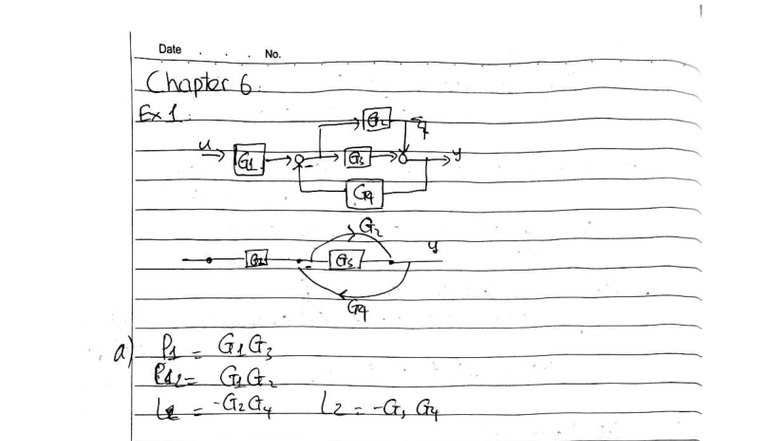 Date . . . No.
Chapter 6
Ex 1
G2
u G1 - G3 y
G4
G2
- G3 y
G4
a) P1 = G1 G3
P2 = G1 G2
L1 = -G2 G4 L2 = -G3 G4